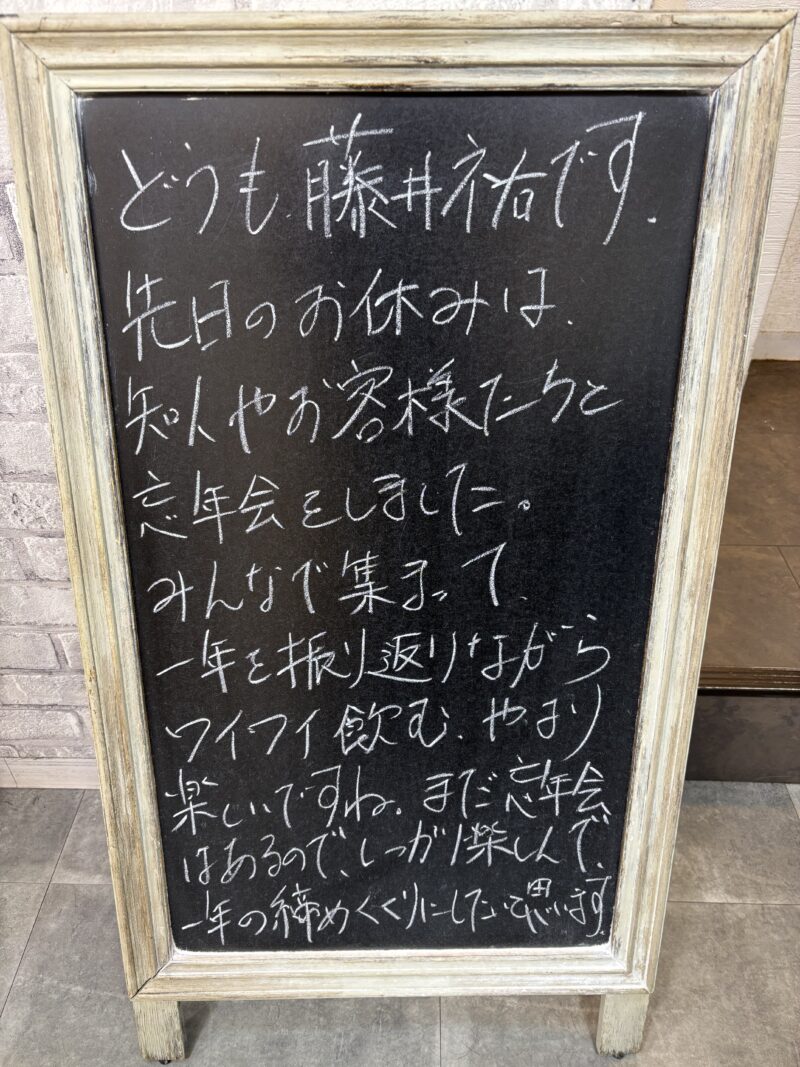 どうも、藤井祐です。
先日のお休みは、
知人やお客様たちと
忘年会をしました。
みんなで集まって、
一年を振り返りながら
ワイワイ飲む、やはり
楽しいですね。まだ忘年会
はあるので、しっかり楽しんで、
一年の締めくくりにしたいと思います